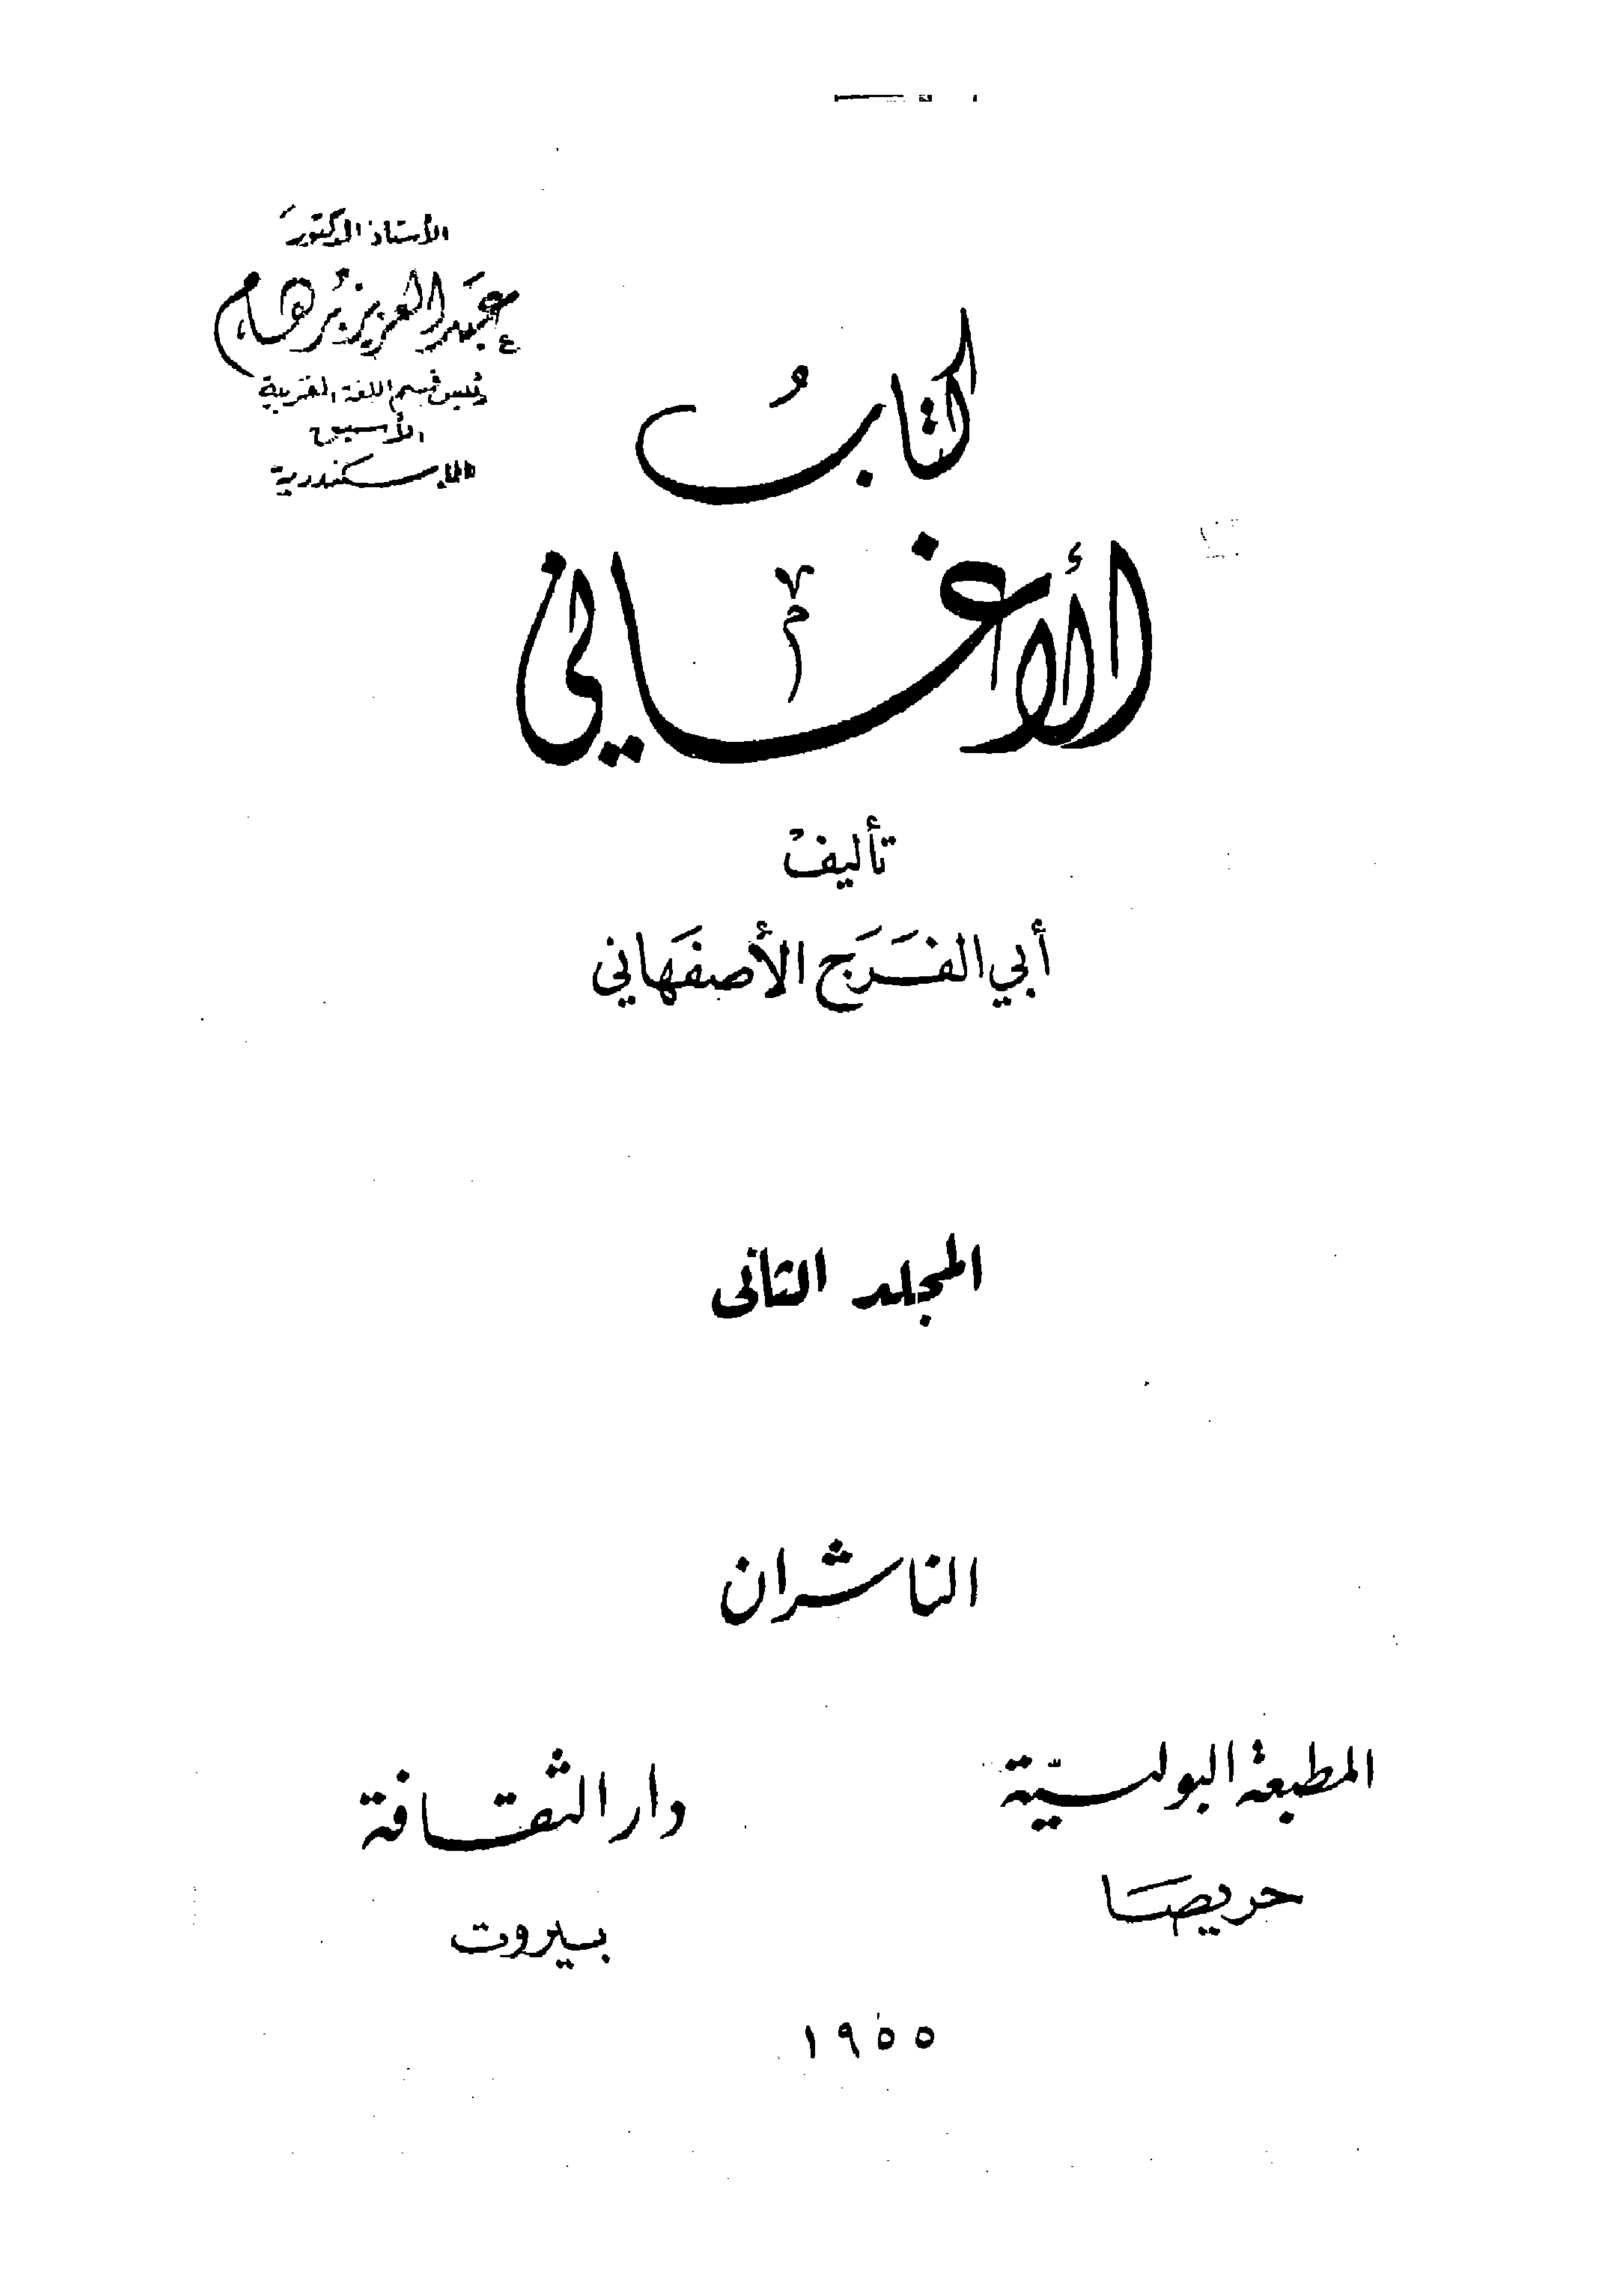 الأستاذ الدكتور
عبد العزيز برهام
رئيس قسم اللغة العربية
الأسبق
بالإسكندرية
كتابُ
الأغاني
تأليف
أبي الفَرَج الأصفَهاني
المجلد الثانى
الناشران
المطبعة البولسيّة
حريصَا
دار الثقافة
بيروت
١٩٥٥